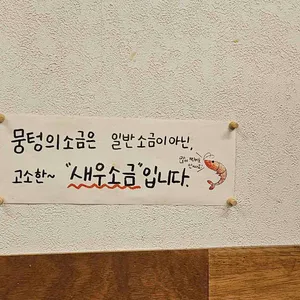 뭉텅의소금은 일반소금이아닌,
고소한~ "새우소금"입니다.